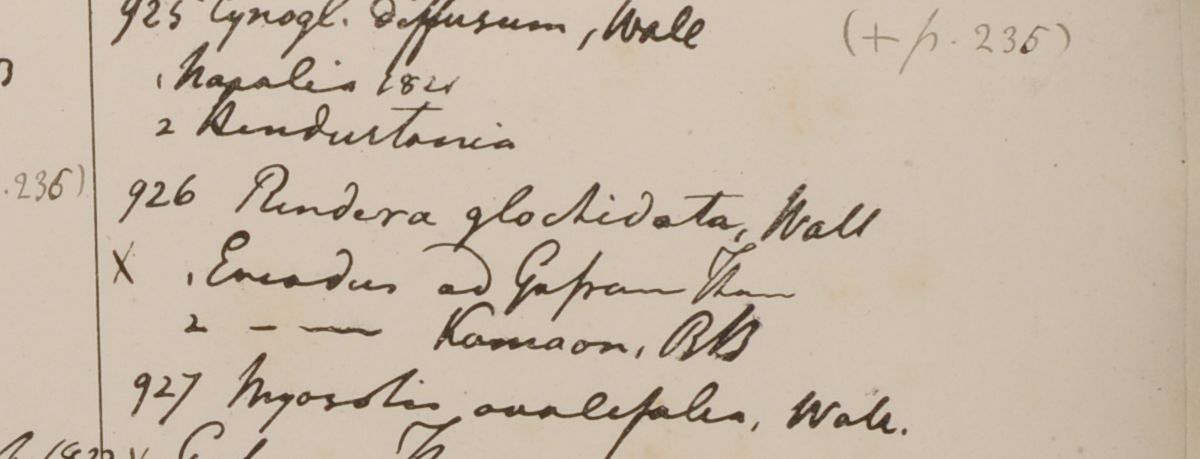 925 Cynogl. diffusum, Wall (+ p. 235)
1 Napalia 1821
2 Hindustania
.236) 926 Rindera glochidata, Wall
X 1 Emodus ad Gosain Than
2 – — Kamaon, RB
927 Myosotis Wall.